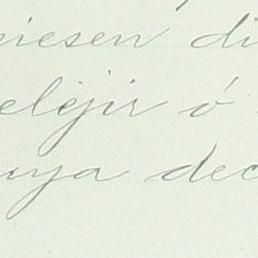 niesen di
elejir ó
uya dec